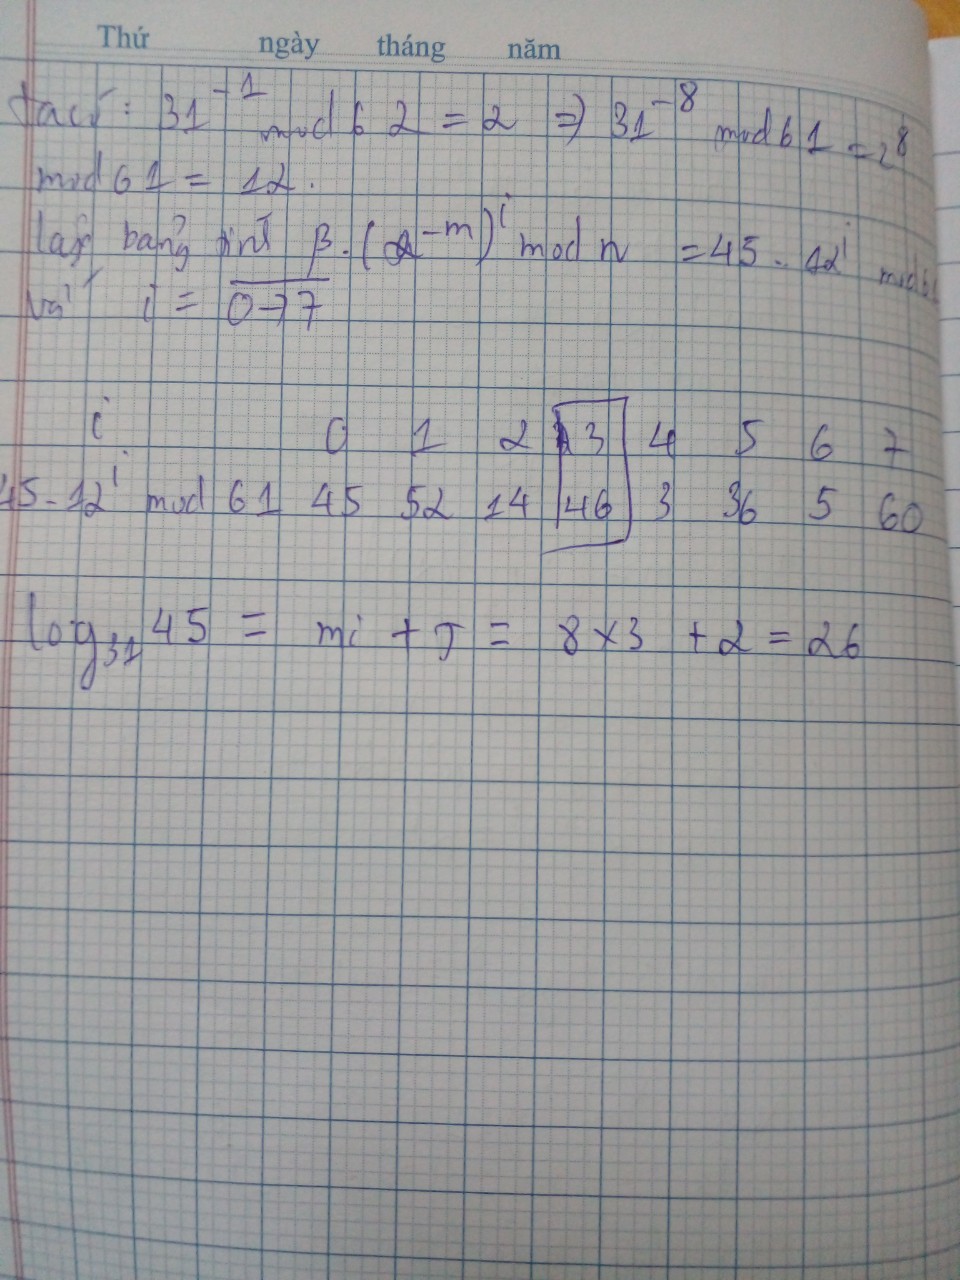 Thứ ngày tháng năm
ta có: 31⁻¹ mod 62 = 2 ⇒ 31⁻⁸ mod 61 = 2⁸
mod 61 = 12.
lập bảng tính β.(α⁻ᵐ)ⁱ mod n = 45 . 12ⁱ mod 61
với i = 0→7
i 0 1 2 3 4 5 6 7
45.12ⁱ mod 61 45 52 14 46 3 36 5 60
log₃₁ 45 = mi + J = 8×3 + 2 = 26